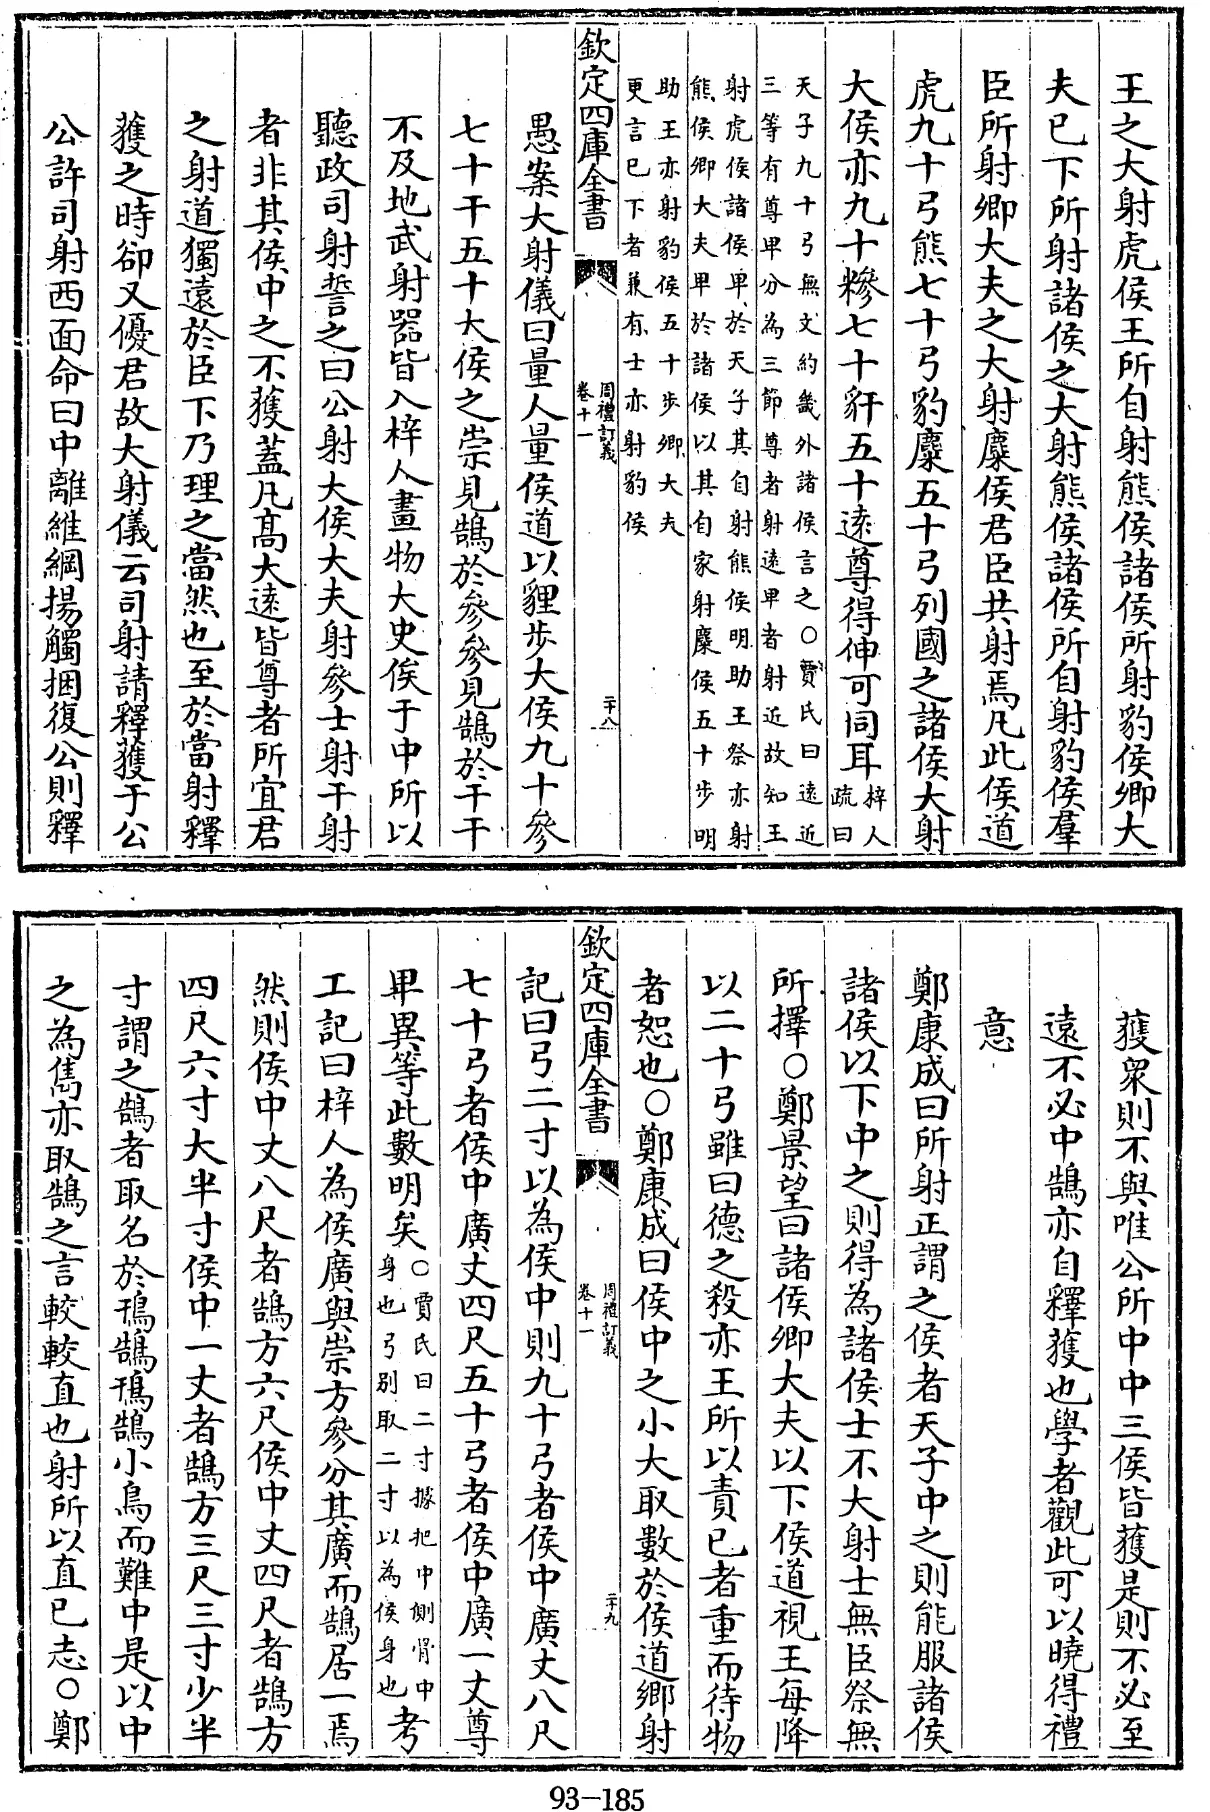 王之大射虎侯王所自射熊侯諸侯所射豹侯卿大
夫已下所射諸侯之大射熊侯諸侯所自射豹侯羣
臣所射卿大夫之大射麋侯君臣共射焉凡此侯道
虎九十弓熊七十弓豹麋五十弓列國之諸侯大射
大侯亦九十糝七十豻五十遠尊得伸可同耳梓人
疏曰
天子九十弓無文約畿外諸侯言之○賈氏曰遠近
三等有尊卑分為三節尊者射遠卑者射近故知王
射虎侯諸侯卑於天子其自射熊侯明助王祭亦射
熊侯卿大夫卑於諸侯以其自家射麋侯五十步明
助王亦射豹侯五十步卿大夫
更言已下者兼有士亦射豹侯
欽定四庫全書
周禮訂義
卷十一
二十八
愚案大射儀曰量人量侯道以貍步大侯九十參
七十干五十大侯之崇見鵠於參參見鵠於干干
不及地武射器皆入梓人畫物大史俟于中所以
聽政司射誓之曰公射大侯大夫射參士射干射
者非其侯中之不獲蓋凡高大遠皆尊者所宜君
之射道獨遠於臣下乃理之當然也至於當射釋
獲之時卻又優君故大射儀云司射請釋獲于公
公許司射西面命曰中離維綱揚觸捆復公則釋
獲衆則不與唯公所中中三侯皆獲是則不必至
遠不必中鵠亦自釋獲也學者觀此可以曉得禮
意
鄭康成曰所射正謂之侯者天子中之則能服諸侯
諸侯以下中之則得為諸侯士不大射士無臣祭無
所擇○鄭景望曰諸侯卿大夫以下侯道視王每降
以二十弓雖曰德之殺亦王所以責已者重而待物
者恕也○鄭康成曰侯中之小大取數於侯道鄉射
欽定四庫全書
周禮訂義
卷十一
二十九
記曰弓二寸以為侯中則九十弓者侯中廣丈八尺
七十弓者侯中廣丈四尺五十弓者侯中廣一丈尊
卑異等此數明矣○賈氏曰二寸據把中側骨中
身也弓別取二寸以為侯身也考
工記曰梓人為侯廣與崇方參分其廣而鵠居一焉
然則侯中丈八尺者鵠方六尺侯中丈四尺者鵠方
四尺六寸大半寸侯中一丈者鵠方三尺三寸少半
寸謂之鵠者取名於鳱鵠鳱鵠小鳥而難中是以中
之為雋亦取鵠之言較較直也射所以直已志○鄭
93-185